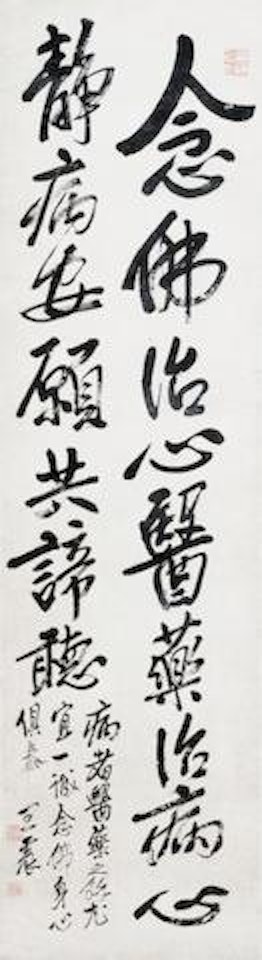 念佛治心醫藥治病心
靜病安願共諦聽
病者醫藥之餘尤
宜一誠念佛身心
俱泰 王震